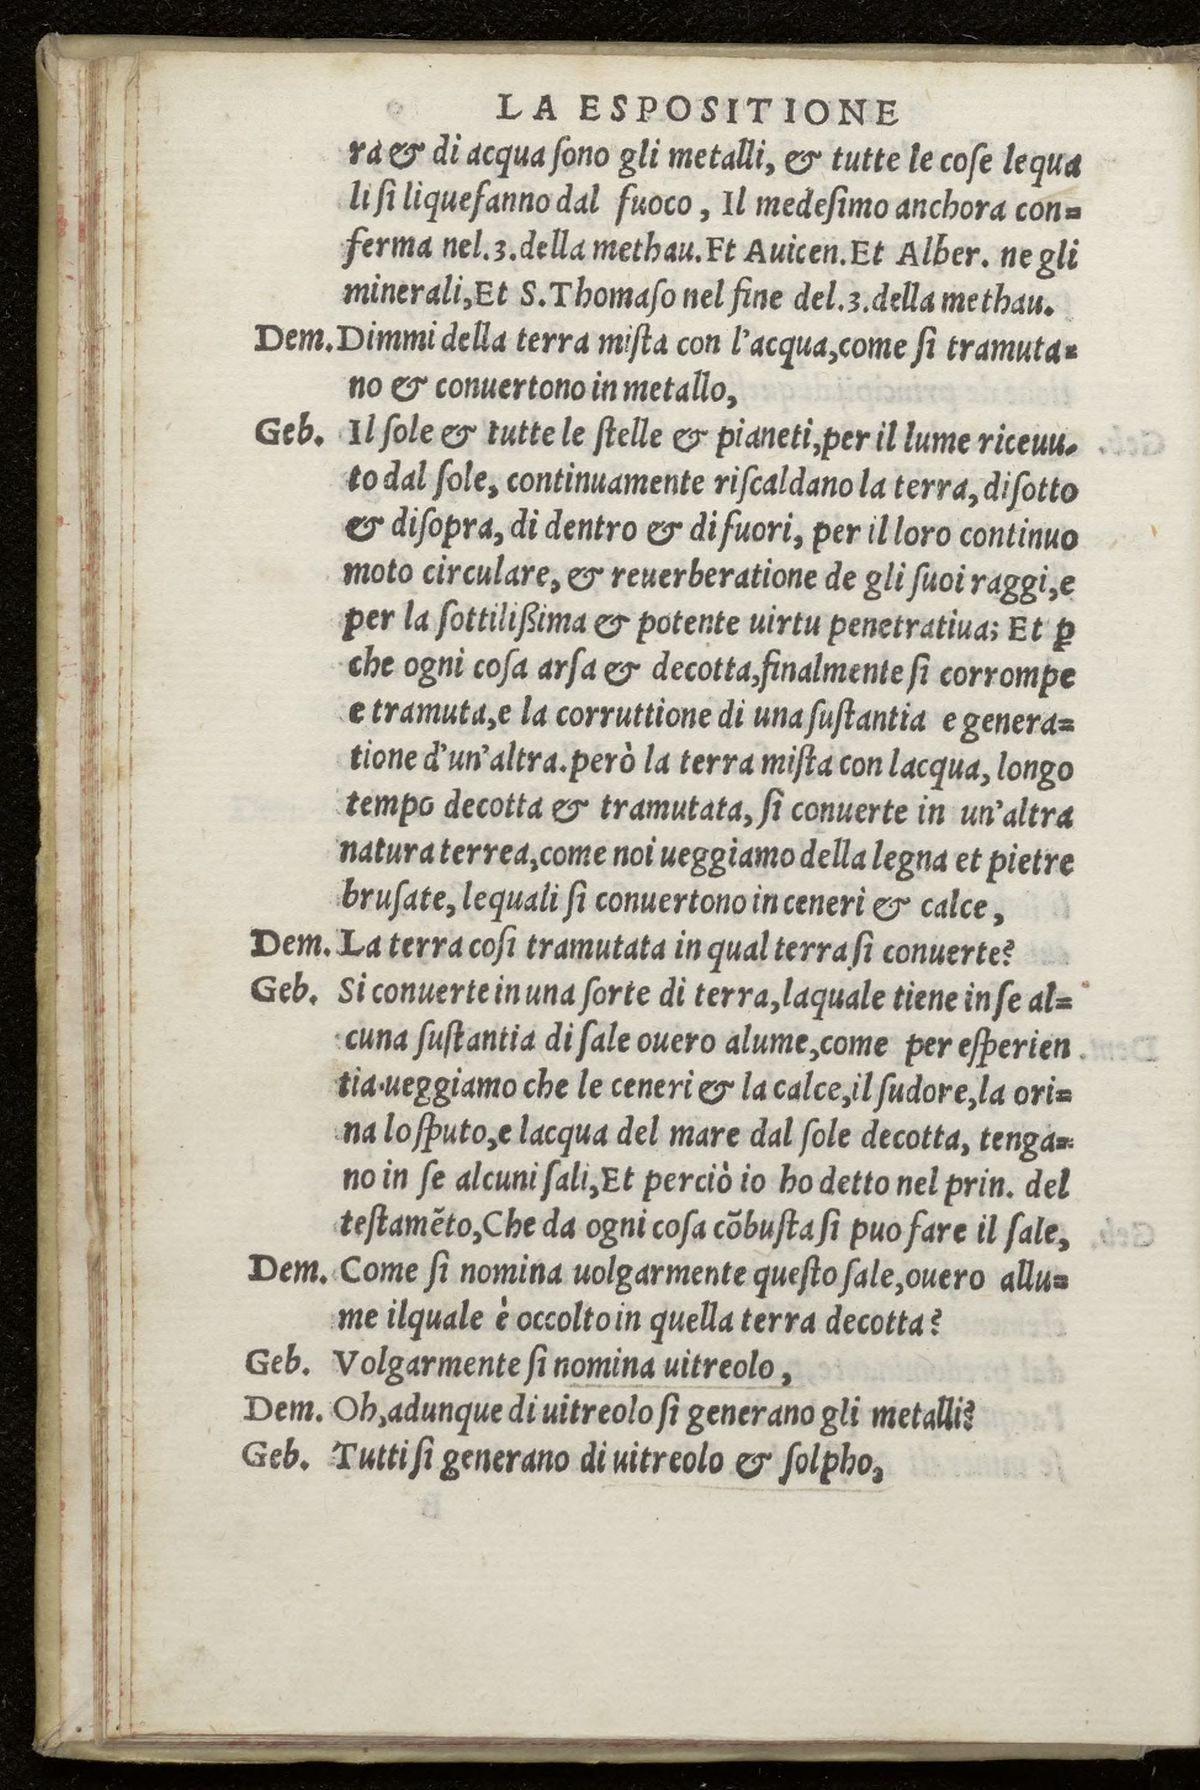 LA ESPOSITIONE
ra & di acqua ſono gli metalli, & tutte le coſe lequa
li ſi liquefanno dal fuoco, Il medeſimo anchora con=
ferma nel.3.della methau.Et Auicen.Et Alber. ne gli
minerali,Et S.Thomaſo nel fine del.3.della methau.
Dem. Dimmi della terra miſta con l'acqua,come ſi tramuta=
no & conuertono in metallo,
Geb. Il ſole & tutte le ſtelle & pianeti,per il lume riceuu-
to dal ſole, continuamente riſcaldano la terra, diſotto
& diſopra, di dentro & di fuori, per il loro continuo
moto circulare, & reuerberatione de gli ſuoi raggi,e
per la ſottilißima & potente uirtu penetratiua; Et ꝑ
che ogni coſa arſa & decotta,finalmente ſi corrompe
e tramuta,e la corruttione di una ſuſtantia e genera=
tione d'un'altra.però la terra miſta con lacqua, longo
tempo decotta & tramutata, ſi conuerte in un'altra
natura terrea,come noi ueggiamo della legna et pietre
bruſate, lequali ſi conuertono in ceneri & calce,
Dem. La terra coſi tramutata in qual terra ſi conuerte?
Geb. Si conuerte in una ſorte di terra,laquale tiene in ſe al=
cuna ſuſtantia di ſale ouero alume,come per eſperien
tia ueggiamo che le ceneri & la calce,il ſudore,la ori=
na lo ſputo,e lacqua del mare dal ſole decotta, tenga=
no in ſe alcuni ſali,Et perciò io ho detto nel prin. del
teſtamẽto,Che da ogni coſa cõbuſta ſi puo fare il ſale,
Dem. Come ſi nomina uolgarmente queſto ſale,ouero allu=
me ilquale è occolto in quella terra decotta?
Geb. Volgarmente ſi nomina uitreolo,
Dem. Oh,adunque di uitreolo ſi generano gli metalli?
Geb. Tutti ſi generano di uitreolo & ſolpho,